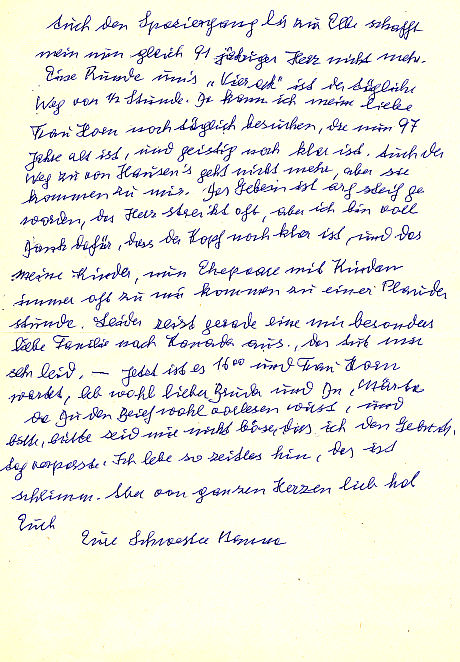 Auch den Spaziergang bis zur Elbe schafft
mein nun gleich 91 jähriger Herz nicht mehr.
Eine Runde um's „Viereck" ist der tägliche
Weg von ½ Stunde. Da kann ich meine liebe
Frau Horn noch täglich besuchen, die nun 97
Jahre alt ist, und geistig noch klar ist. Auch der
Weg zu von Hausen's geht nicht mehr, aber sie
kommen zu mir. Das Gebein ist arg steif ge
worden, das Herz streikt oft, aber ich bin voll
Dank dafür, dass der Kopf noch klar ist, und das
meine Kinder, nun Ehepaare mit Kindern
immer oft zu mir kommen zu einer Plauder
stunde. Leider reist gerade eine mir besonders
liebe Familie nach Kanada aus, das tut mir
sehr leid, — jetzt ist es 16⁰⁰ und Frau Horn
wartet, leb wohl lieber Bruder und Du, Märta
da Du den Brief wohl vorlesen wirst, und
bitte, bitte seid mir nicht böse, dass ich den Geburts.
tag verpasste. Ich lebe so zeitlos hin, das ist
schlimm. Aber von ganzen Herzen lieb hat
Euch
Eure Schwester